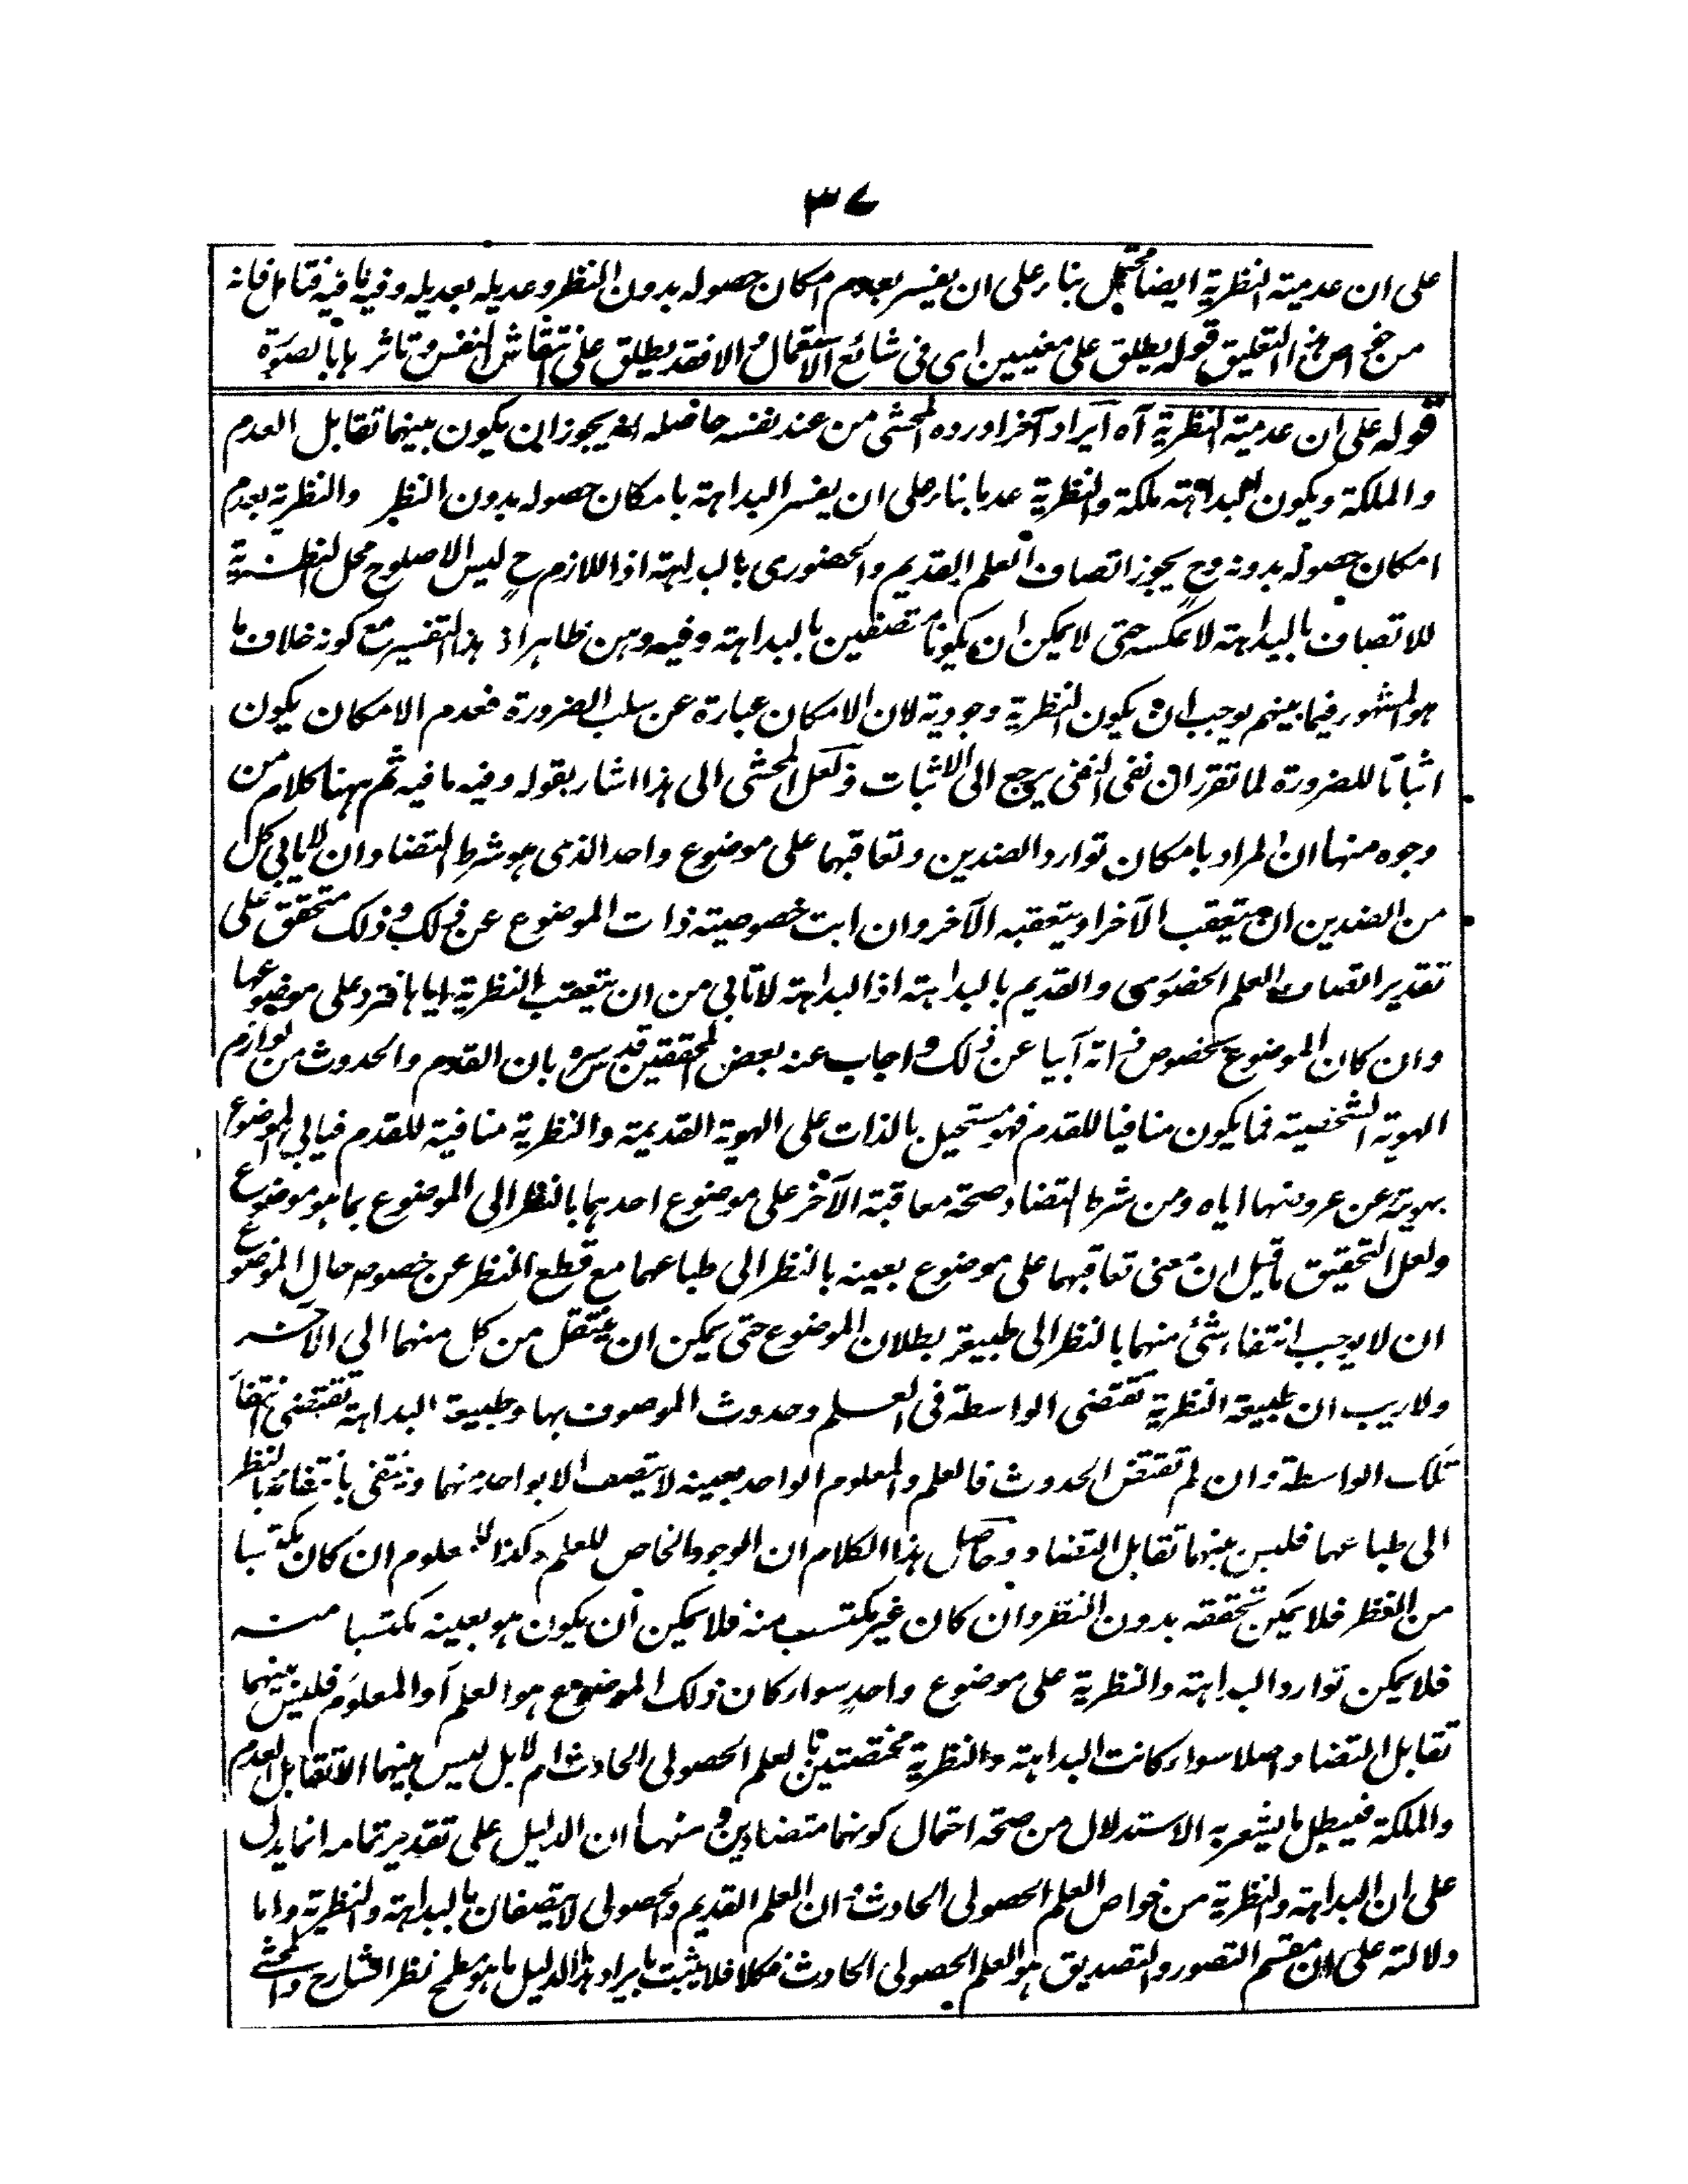 ٣٧
على ان عدمية النظرية ايضا محتمل بناء على ان يفسر بعدم امكان حصوله بدون النظر وعديله بعديله وفيه ما فيه فتامل فانه
من خواص هذا التعليق قوله يطلق على معنيين اى فى شائع الاستعمال والا فقد يطلق على انتقاش النفس وتاثرها بالصورة
قوله على ان عدمية النظرية آه ايراد آخر اورده المحشى من عند نفسه حاصله انه يجوز ان يكون بينهما تقابل العدم
والملكة ويكون البداهته ملكة والنظرية عدما بناء على ان يفسر البداهته بامكان حصوله بدون النظر والنظرية بعدم
امكان حصوله بدونه وح يجوز اتصاف العلم القديم والحضورى بالبداهته اذ اللازم ح ليس الا صلوح محل النظرية
للاتصاف بالبداهته لا عكسه حتى لا يمكن ان يكونا متصفين بالبداهته وفيه وهن ظاهر اذ هذا التفسير مع كونه خلاف ما
هو المشهور فيما بينهم يوجب ان يكون النظرية وجودية لان الامكان عبارة عن سلب الضرورة فعدم الامكان يكون
اثباتا للضرورة لما تقرر ان نفى النفى يرجع الى الاثبات ولعل المحشى الى هذا اشار بقوله وفيه ما فيه ثم ههنا كلام من
وجوه منها ان المراد بامكان توارد الضدين وتعاقبهما على موضوع واحد الذى هو شرط التضاد ان لا يابى كل
من الضدين ان يتعقب الآخر او يتعقبه الآخر وان ابت خصوصيته ذات الموضوع عن ذلك وذلك متحقق على
تقدير اتصاف العلم الحضورى والقديم بالبداهته اذ البداهته لا تابى من ان يتعقب النظرية اياها فترد على موضوعها
وان كان الموضوع بخصوص ذاته آبيا عن ذلك واجاب عنه بعض المحققين قدس سره بان القدم والحدوث من لوازم
الهوية الشخصية فما يكون منافيا للقدم فهو مستحيل بالذات على الهوية القديمته والنظرية منافية للقدم فيابى الموضوع
بهويته عن عروضها اياه ومن شرط التضاد صحة معاقبته الآخر على موضوع احدهما بالنظر الى الموضوع بما هو موضوع
ولعل التحقيق ما قيل ان معنى تعاقبهما على موضوع بعينه بالنظر الى طباعهما مع قطع النظر عن خصوص حال الموضوع
ان لا يوجب انتفاء شئ منهما بالنظر الى طبيعته بطلان الموضوع حتى يمكن ان ينتقل من كل منهما الى الآخر
ولا ريب ان طبيعة النظرية تقتضى الواسطة فى العلم وحدوث الموصوف بها وطبيعة البداهته تقتضى انتفاء
تلك الواسطة وان لم تقتض الحدوث فالعلم والمعلوم الواحد بعينه لا يتصف الا بواحد منهما وينتفى بانتفائه بالنظر
الى طباعهما فليس بينهما تقابل التضاد وحاصل هذا الكلام ان الوجود الخاص للعلم وكذا للمعلوم ان كان مكتسبا
من النظر فلا يمكن تحققه بدون النظر وان كان غير مكتسب منه فلا يمكن ان يكون هو بعينه مكتسبا منه
فلا يمكن توارد البداهته والنظرية على موضوع واحد سواء كان ذلك الموضوع هو العلم او المعلوم فليس بينهما
تقابل التضاد اصلا سواء كانت البداهته والنظرية مختصتين بالعلم الحصولى الحادث ام لا بل ليس بينهما الا تقابل العدم
والملكة فيبطل ما يشعر به الاستدلال من صحة احتمال كونهما متضادين ومنها ان الدليل على تقدير تمامه انما يدل
على ان البداهته والنظرية من خواص العلم الحصولى الحادث وان العلم القديم والحصولى لا يتصفان بالبداهته والنظرية واما
دلالته على ان مقسم التصور والتصديق هو العلم الحصولى الحادث فكلا فلا يثبت بايراد هذا الدليل ما هو مطمح نظر الشارح والمحشى